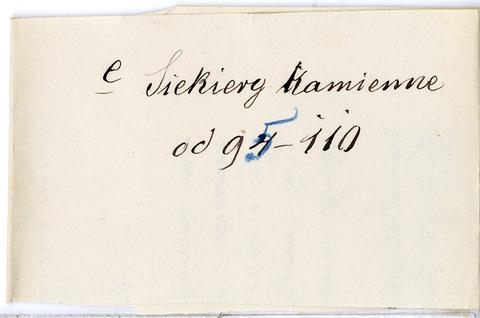 e Siekiery Kamienne
od 95-110